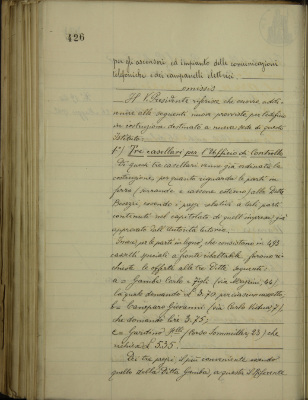 426
per gli ascensori ed impianto delle comunicazioni
telefoniche e dei campanelli elettrici.
omissis
Il V. Presidente riferisce che occorre addi-
venire alle seguenti nuove provviste per l'edificio
in costruzione destinato a nuova sede di questo
Istituto:
1°) Tre casellari per l'Ufficio di Controllo
Di questi tre casellari venne già ordinata la
costruzione, per quanto riguarda le parti in
ferro alla Ditta
essendo i prezzi relativi a tali parti
contenuti nel capitolato di quell'impresa già
approvato dall'Autorità tutoria.
Invece, per le parti in legno, che consistono in 493
caselle quadrate a fronte ribaltabile, furono ri-
chieste le offerte alle tre Ditte seguenti:
a = Gamba Carlo e Figli
la quale domandò £ 3.70 per ciascuna casella,
b = Giovanni
che domandò lire 3.75;
c = F.lli (Corso Sommeiller, 23) che
richiese £ 5.35.
Dei tre prezzi, il più conveniente essendo
quello della Ditta Gamba, a questa il Riferente